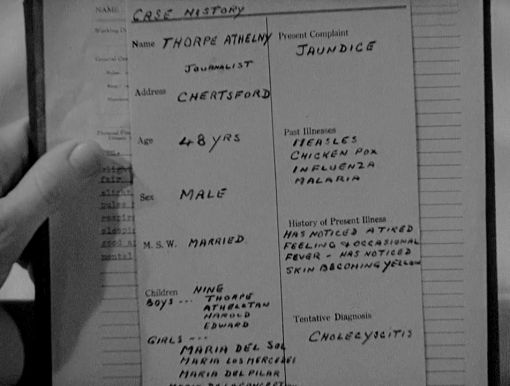 CASE HISTORY
Name THORPE ATHELNY
JOURNALIST
Address CHERTSFORD
Age 48 YRS
Sex MALE
M. S. W. MARRIED
Children NINE
BOYS --- THORPE
ATHELSTAN
HAROLD
EDWARD
GIRLS ---
MARIA DEL SOL
MARIA LOS MERCEDES
MARIA DEL PILAR
Present Complaint
JAUNDICE
Past Illnesses
MEASLES
CHICKEN POX
INFLUENZA
MALARIA
History of Present Illness
HAS NOTICED A TIRED
FEELING & OCCASIONAL
FEVER - HAS NOTICED
SKIN BECOMING YELLOW
Tentative Diagnosis
CHOLECYSCITIS
NAME